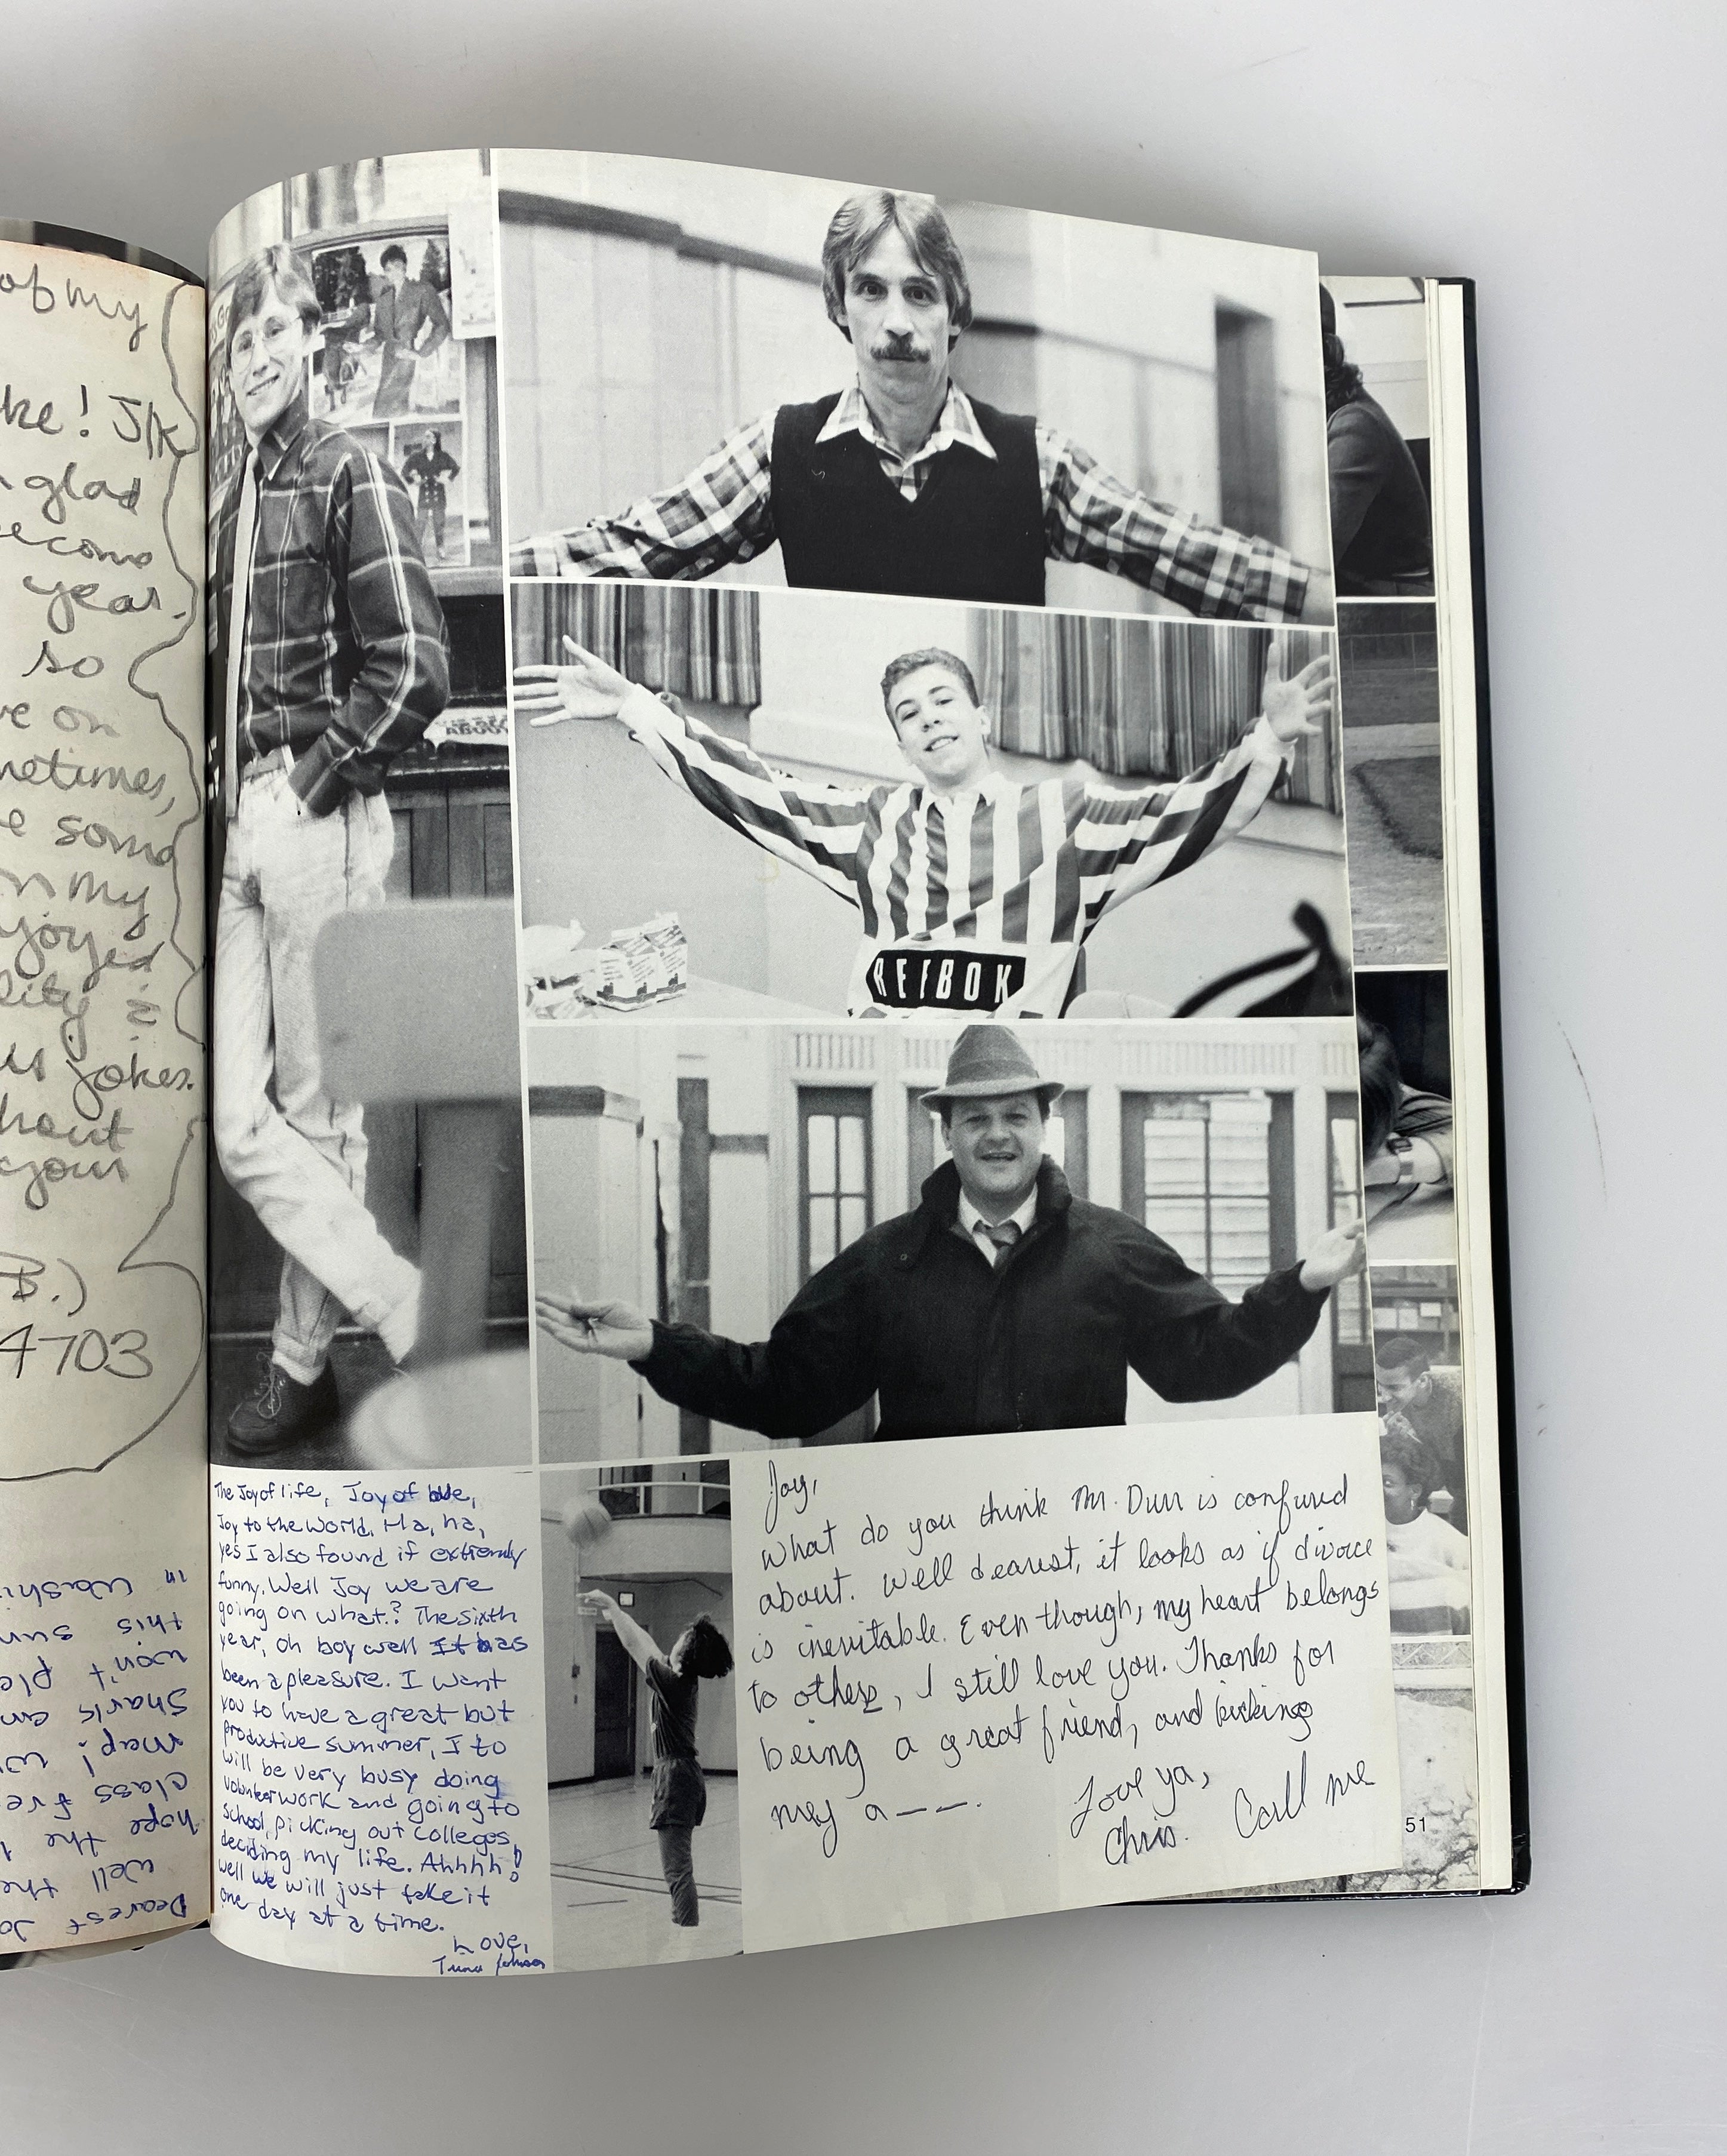 of my
ke! J/k
glad
second
year.
so
ve on
metimes,
e some
n my
njoyed
lity &
us jokes.
hout
your
B.)
4703
in Washi
this sun
won't ple
Shark an
map! w
class fre
hope the
well the
Dearest Jo
REEBOK
The Joy of life, Joy of
Joy to the world. Ha, ha,
yes I also found if extremly
funny. Well Joy we are
going on what? The sixth
year, oh boy well It has
been a pleasure. I want
you to have a great but
productive summer, I to
will be very busy doing
volunteer work and going to
school, picking out colleges,
deciding my life. Ahhhh!
well we will just take it
one day at a time.
Love,
Trina Johnson
Joy,
What do you think Mr. Durr is confused
about. Well dearest, it looks as if divorce
is inevitable. Even though, my heart belongs
to others, I still love you. Thanks for
being a great friend, and kicking
my a---.
Love ya,
Chris.
Call me
51